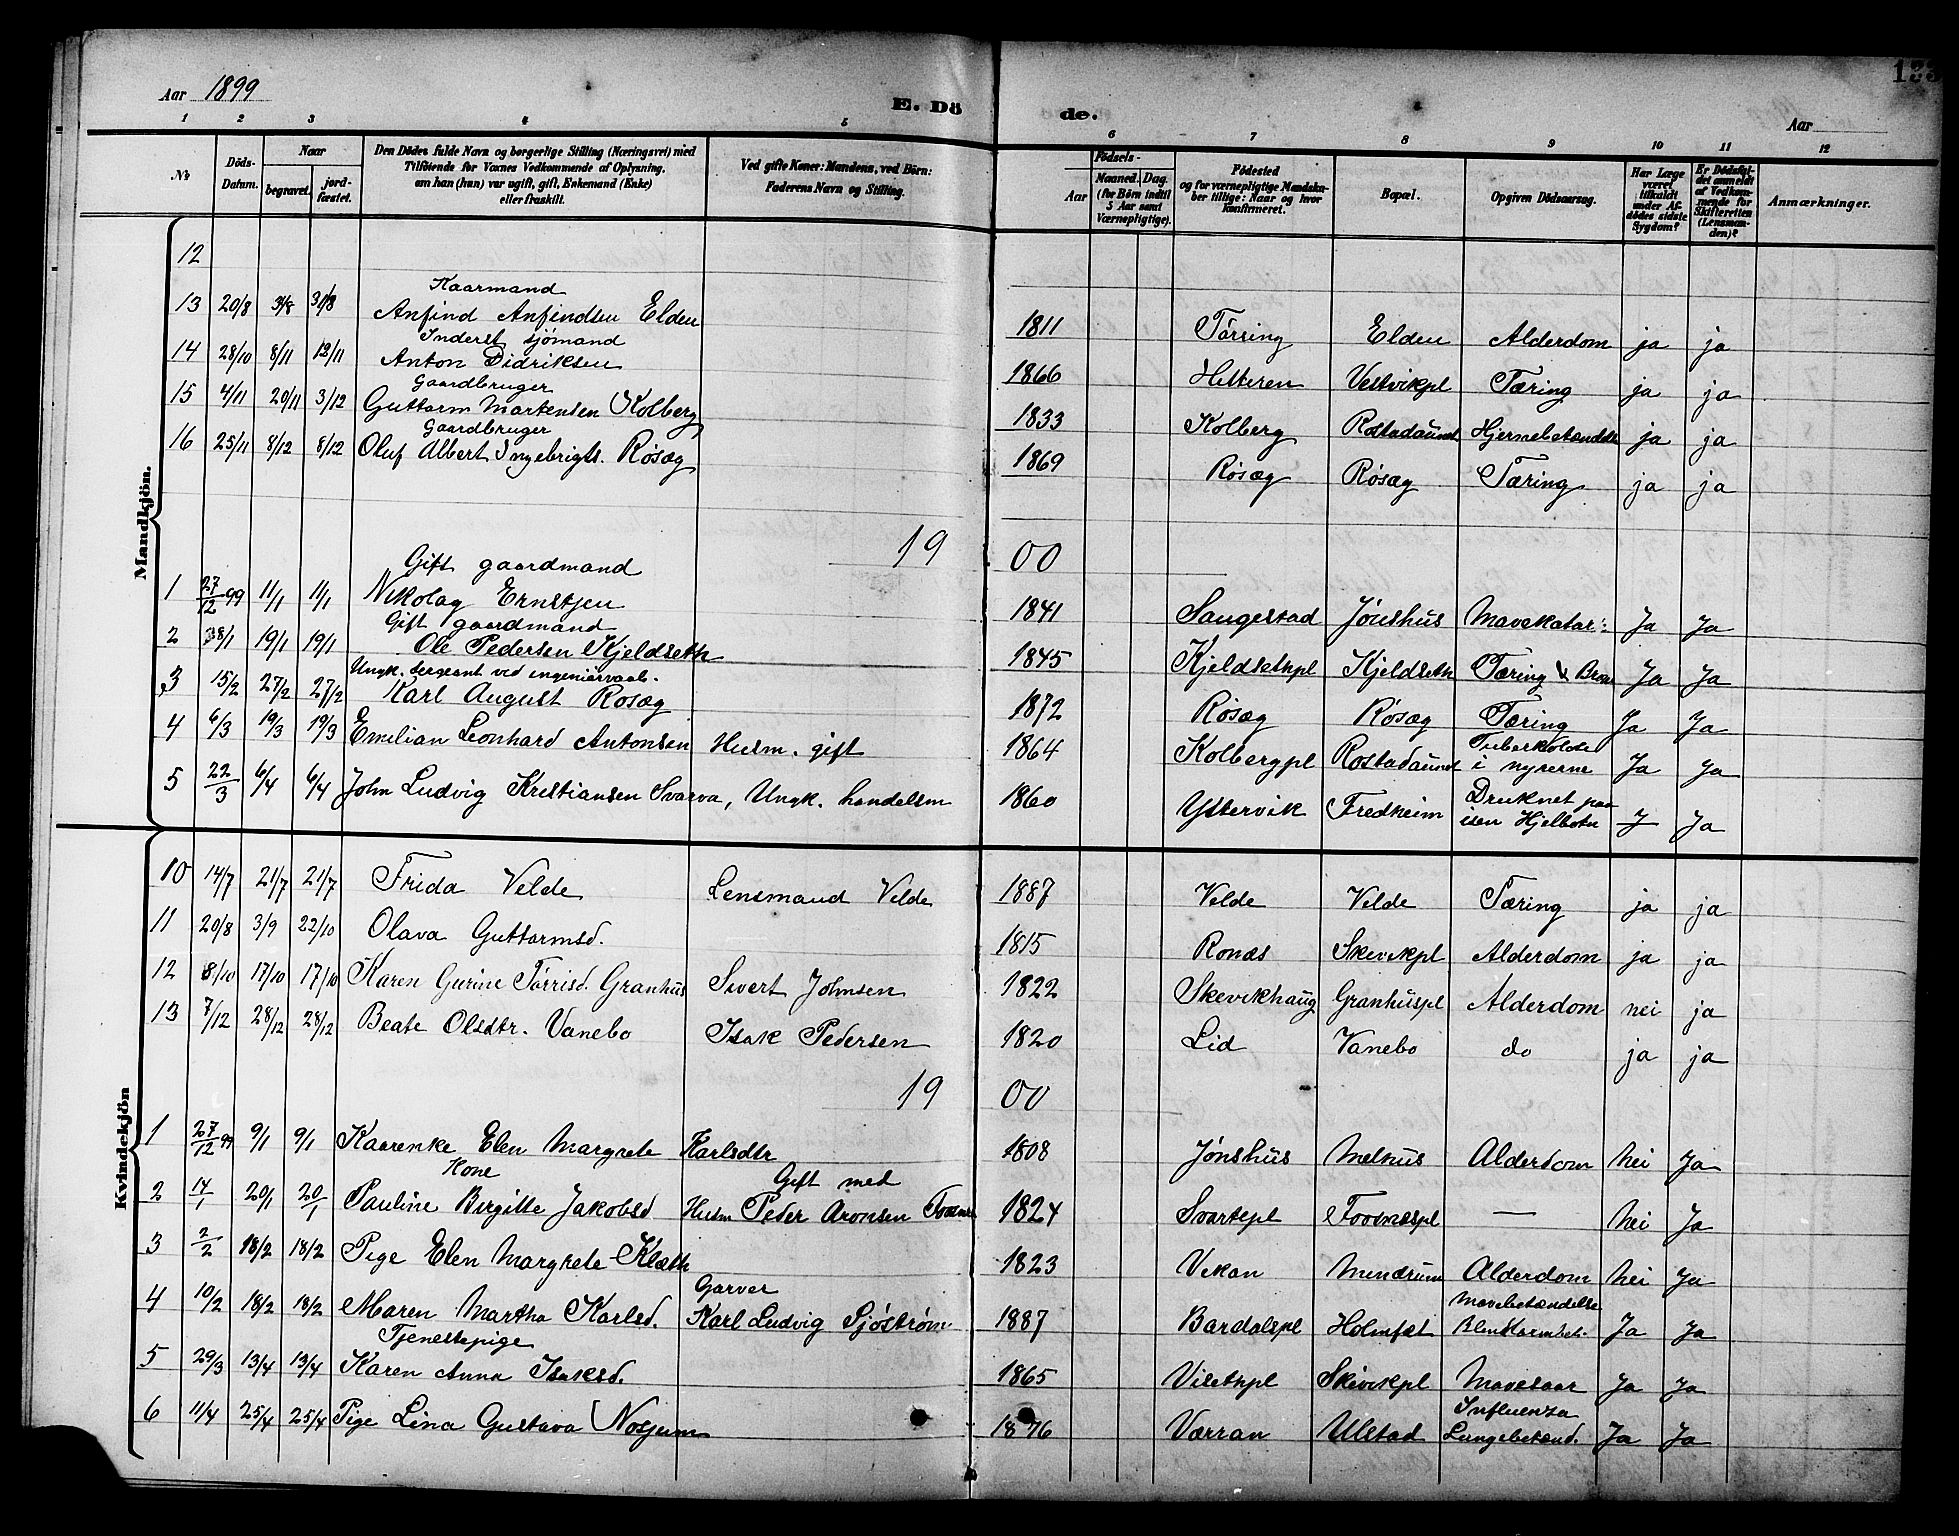 133
Aar 1899
E. Döde.
Aar
1 2 3 4 5 6 7 8 9 10 11 12
№
Döds-Datum.
Naar
begravet.
jord-fæstet.
Den Dödes fulde Navn og borgerlige Stilling (Næringsvei) med
Tilföiende for Voxnes Vedkommende af Oplysning,
om han (hun) var ugift, gift, Enkemand (Enke)
eller fraskilt.
Ved gifte Koner: Mandens, ved Börn:
Faderens Navn og Stilling.
Födsels-
Aar
Maaned. Dag.
(for Börn indtil
5 Aar samt
Værnepligtige).
Födested
og for værnepligtige Mandska-
ber tillige: Naar og hvor
konfirmeret.
Bopæl.
Opgiven Dödsaarsag.
Har Læge
været
tilkaldt
under Af-
dödes sidste
Sygdom?
Er Dödsfal-
det anmeldt
af Vedkom-
mende for
Skifteretten
(Lensman-
den)?
Anmærkninger.
Mandkjön.
12
Kaarmand
13 20/8 Anfind Anfindsen Elden 1811 Tørring Elden Alderdom ja ja
Inderst sjömand
14 28/10 8/11 12/11 Anton Didriksen 1866 Hitteren Vestvikpl Tæring ja ja
Gaardbruger
15 4/11 20/11 3/12 Guttorm Martensen Kolberg 1833 Kolberg Rostadaunet ja ja
Gaardbruger
16 25/11 8/12 8/12 Oluf Albert Ingebrigts. Røsæg 1869 Røsæg Røsæg Tæring ja ja
1900
Gift gaardmand
1 27/12 99 11/1 11/1 Nikolay Ernstsen 1841 Saugestad Jønshus Mavekatar Ja Ja
Gift gaardmand
2 19/1 19/1 Ole Pedersen Kjeldseth 1845 Kjeldsethpl Kjeldseth Tæring Ja Ja
Ungk. sergeant ved
3 15/2 27/2 27/2 Karl August Rosæg 1872 Røsæg Røsæg Tæring Ja Ja
4 6/3 19/3 19/3 Emilian Leonhard Antonsen Husm. gift 1864 Kolbergpl Rostadaunet Tuberkolose i nyrerne Ja Ja
5 22/3 6/4 6/4 John Ludvig Kristiansen Svarva, Ungk. handelsm 1860 Ystervik Fredheim Druknet paa isen Hjelbotn Ja
Kvindekjön
10 14/7 21/7 21/7 Frida Velde Lensmand Velde 1887 Velde Velde Tæring ja ja
11 20/8 3/9 22/10 Olava Guttormsd. 1815 Ronæs Skevikpl Alderdom ja ja
12 8/10 17/10 17/10 Karen Gurine Tørrisd. Granhus Sivert Johnsen 1822 Skevikhaug Granhuspl Alderdom nei ja
13 7/12 28/12 28/12 Beate Olsdtr. Vanebo Isak Pedersen 1820 Lid Vanebo do ja ja
1900
1 27/12 99 9/1 9/1 Kaarenke Elen Margrete Karlsdtr 1808 Jønshus Melhus Alderdom nei Ja
Kone Gift med
2 14/1 20/1 20/1 Pauline Birgitte Jakobsd Husm Peder Aronsen 1824 Svartepl Foosnæspl — nei Ja
3 2/2 18/2 18/2 Pige Elen Margrete Klæth 1823 Vikan Mendrum Alderdom nei Ja
Garver
4 10/2 18/2 18/2 Maren Martha Karlsd. Karl Ludvig Sjöström 1887 Bardalspl Holmset Mavebetændelse Ja Ja
Tjenestepige
5 29/3 13/4 13/4 Karen Anna Isaksd. 1865 Skevikpl Mavesaar Ja Ja
6 11/4 25/4 25/4 Pige Lina Gustava 1876 Værran Ulstad Influenza Lungebetænd. Ja Ja